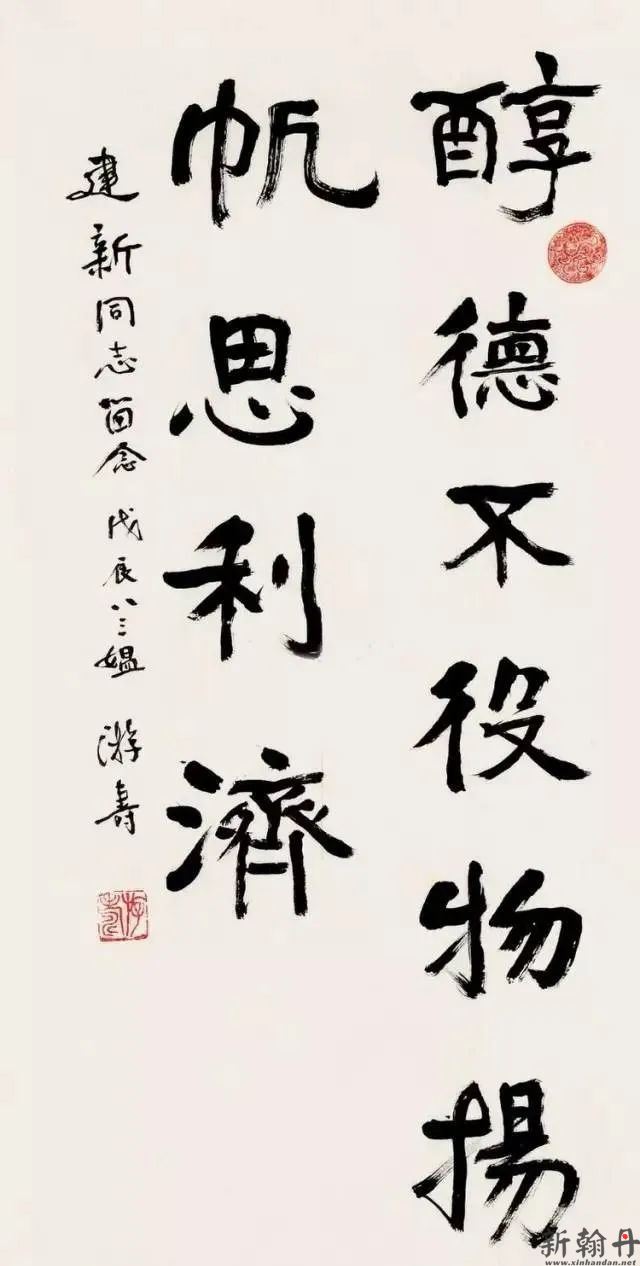 醇德不役物揚
帆思利濟
建新同志留念 戊辰八三媪 游壽
游壽
新翰丹
www.xinhandan.net